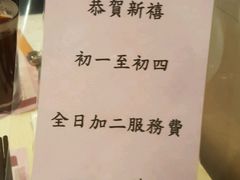 恭賀新禧
初一至初四
全日加二服務費